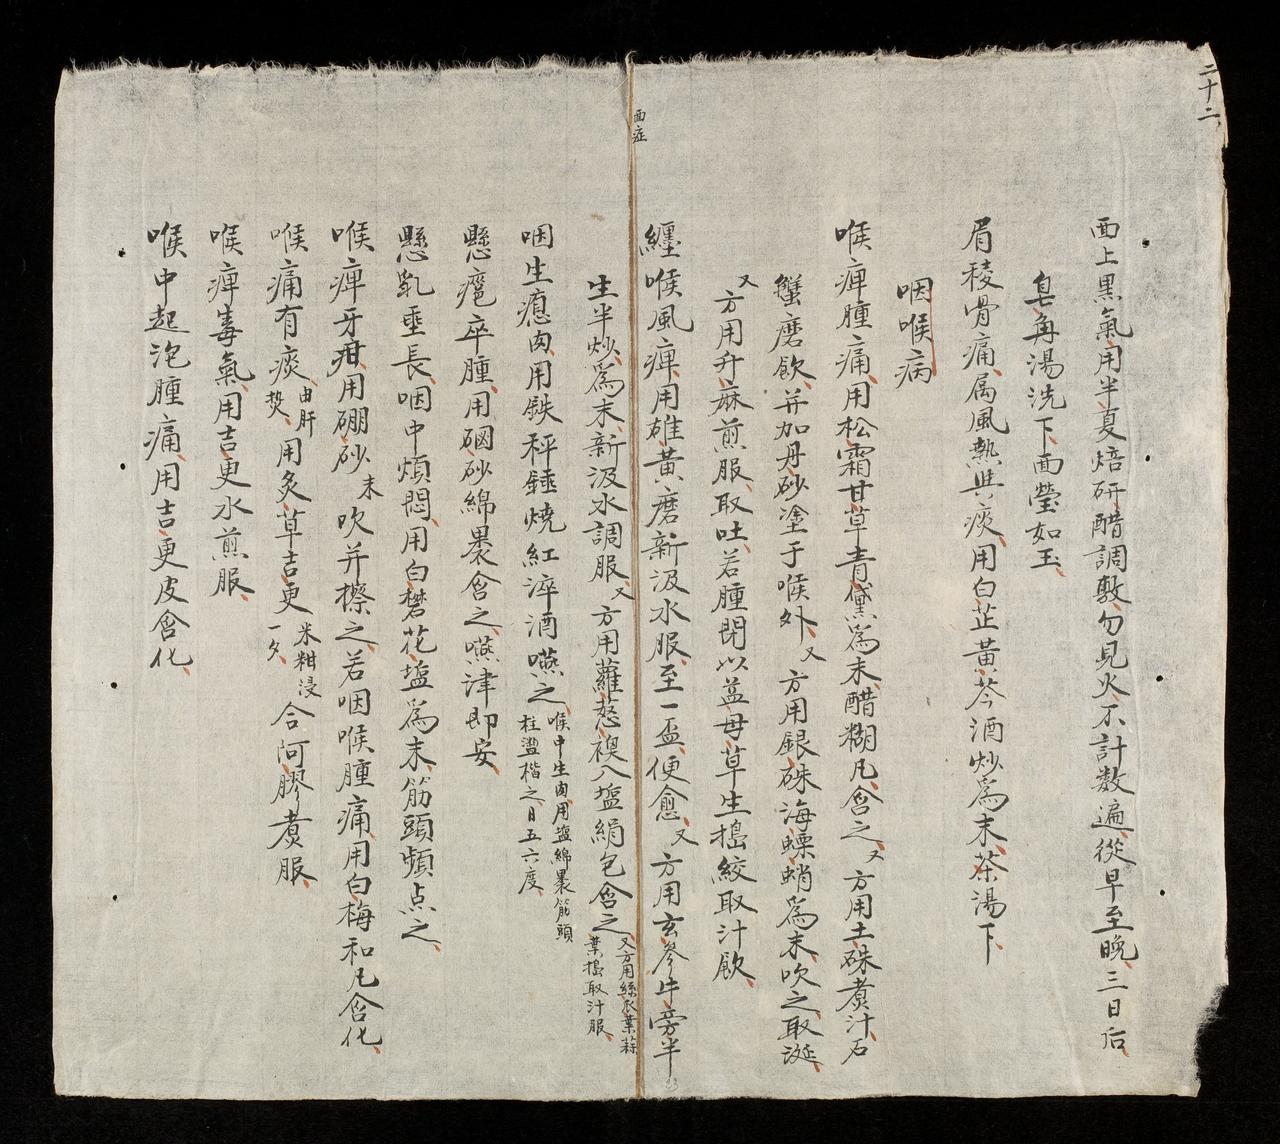 二十二
面上黑氣用半夏焙研醋調敷勿見火不計數遍從早至晚三日后
皂角湯洗下面瑩如玉
眉稜骨痛属風熱與痰用白芷黃芩酒炒為末茶湯下
咽喉病
喉痺腫痛用松霜甘草青黛為末醋糊凡含之又方用土硃煮汁石
蟹磨飲并加丹砂塗于喉外又方用銀硃海螵蛸為末吹之取涎
又方用升麻煎服取吐若腫閉以益母草生搗絞取汁飲
面症
纏喉風痺用雄黃磨新汲水服至一盃便愈又方用玄參牛旁半
生半炒為末新汲水調服又方用蘿葱襖入塩絹包含之又方用絲瓜葉蒜
葉搗取汁服
咽生瘜肉用鉄秤錘燒紅淬酒嚥之喉中生肉用塩綿裹筯頭
柱盬楷之日五六度
懸癰卒腫用硇砂綿裹含之嚥津即安
懸乳垂長咽中煩悶用白礬花塩為末筋頭頻点之
喉痺牙疳用硼砂末吹并擦之若咽喉腫痛用白梅和凡含化
喉痛有痰由肝
熱用炙草吉更米柑浸
一夕合阿膠煮服
喉痺毒氣用吉更水煎服
喉中起泡腫痛用吉更皮含化